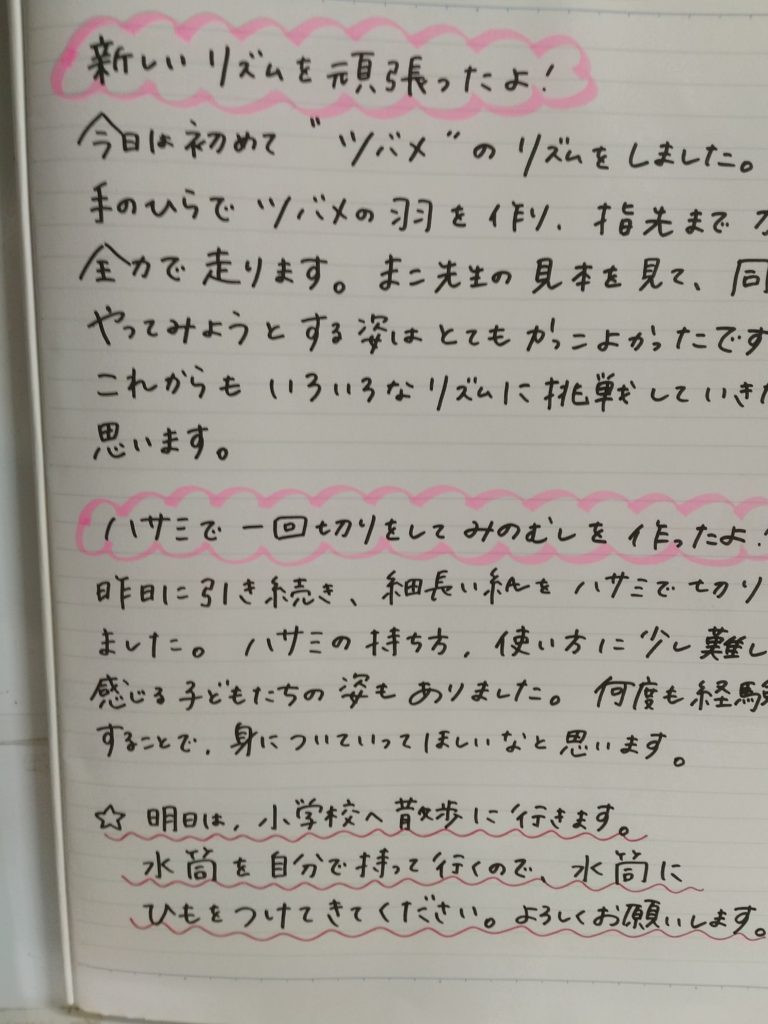 新しいリズムを頑張ったよ!
今日は初めて"ツバメ"のリズムをしました。
手のひらでツバメの羽を作り、指先まで
全力で走ります。まこ先生の見本を見て、同
やってみようとする姿はとてもかっこよかったです
これからもいろいろなリズムに挑戦していき
思います。
ハサミで一回切りをしてみのむしを作ったよ!
昨日に引き続き、細長い紙をハサミで切り
ました。ハサミの持ち方、使い方に少し難し
感じる子どもたちの姿もありました。何度も経験
することで、身についていってほしいなと思います。
☆明日は、小学校へ散歩に行きます。
水筒を自分で持って行くので、水筒に
ひもをつけてきてください。よろしくお願いします。